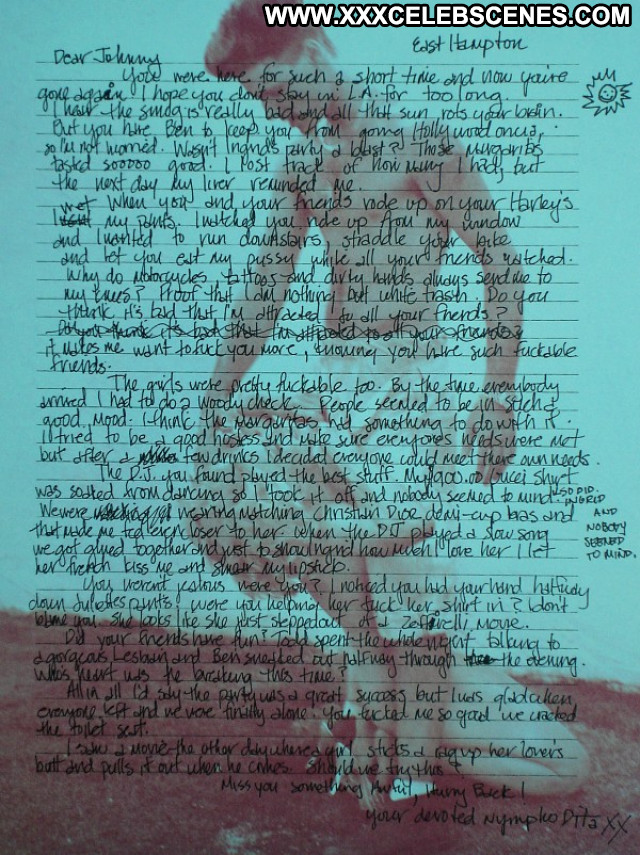 WWW.XXXCELEBSCENES.COM
East Hampton
Dear Johnny
You were here for such a short time and now you're
gone again. I hope you don't stay in L.A. for too long.
I hear the smog is really bad and all that sun rots your brain.
But you have Ben to keep you from going Hollywood on us,
so I'm not worried. Wasn't Ingrid's party a blast? Those margaritas
tasted sooooo good. I lost track of how many I had, but
the next day my liver reminded me.
When you and your friends rode up on your Harley's
I wet my pants. I watched you ride up from my window
and I wanted to run downstairs, straddle your bike
and let you eat my pussy while all your friends watched.
Why do motorcycles, tattoos and dirty hands always send me to
my knees? Proof that I am nothing but white trash. Do you
think it's bad that I'm attracted to all your friends?
Do you think it's bad that I'm attracted to all your friends
it makes me want to fuck you more, knowing you have such fuckable
friends.
The girls were pretty fuckable too. By the time everybody
arrived I had to do a woody check. People seemed to be in such a
good mood. I think the margaritas had something to do with it.
I tried to be a good hostess and make sure everyone's needs were met
but after a few drinks I decided everyone could meet there own needs.
The D.J. you found played the best stuff. My Gucci shirt
was soaked from dancing so I took it off and nobody seemed to mind.
SO DID INGRID AND NOBODY SEEMED TO MIND.
We were wearing matching Christian Dior demi-cup bras and
that made me feel even closer to her. When the DJ played a slow song
we got glued together and just to show Ingrid how much I love her I let
her french kiss me and smear my lipstick.
You weren't jealous were you? I noticed you had your hand halfway
down Juliette's pants. were you helping her tuck her shirt in? I don't
blame you. She looks like she just stepped out of a Zeffirelli movie.
Did your friends have fun? Todd spent the whole night talking to
a gorgeous Lesbian and Ben sneaked out halfway through the the evening.
Who's heart was he breaking this time?
All in all I'd say the party was a great success but I was glad when
everyone left and we were finally alone. You fucked me so good we cracked
the toilet seat.
I saw a movie the other day where a girl sticks a rag up her lover's
butt and pulls it out when he comes. Should we try this?
Miss you something Awful, Hurry Back!
your devoted Nympho Dita XX